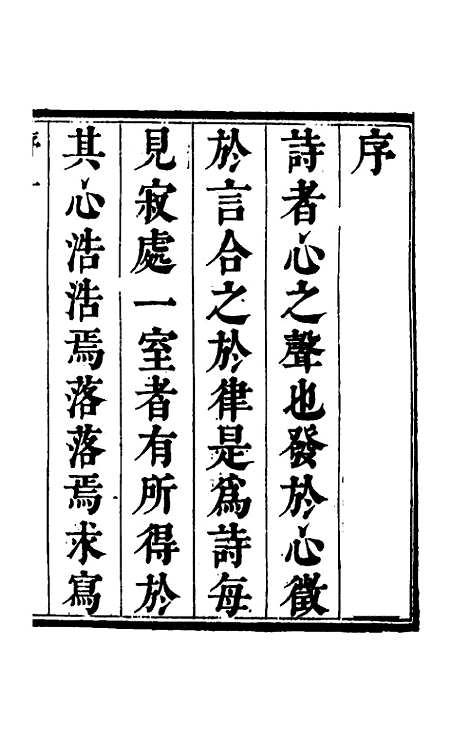 序
詩者心之聲也發於心徵
於言合之於律是為詩每
見寂處一室者有所得於
其心浩浩焉落落焉求寫
序一